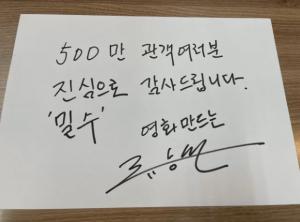 500만 관객여러분
진심으로 감사드립니다.
'밀수'
영화만드는
류승완